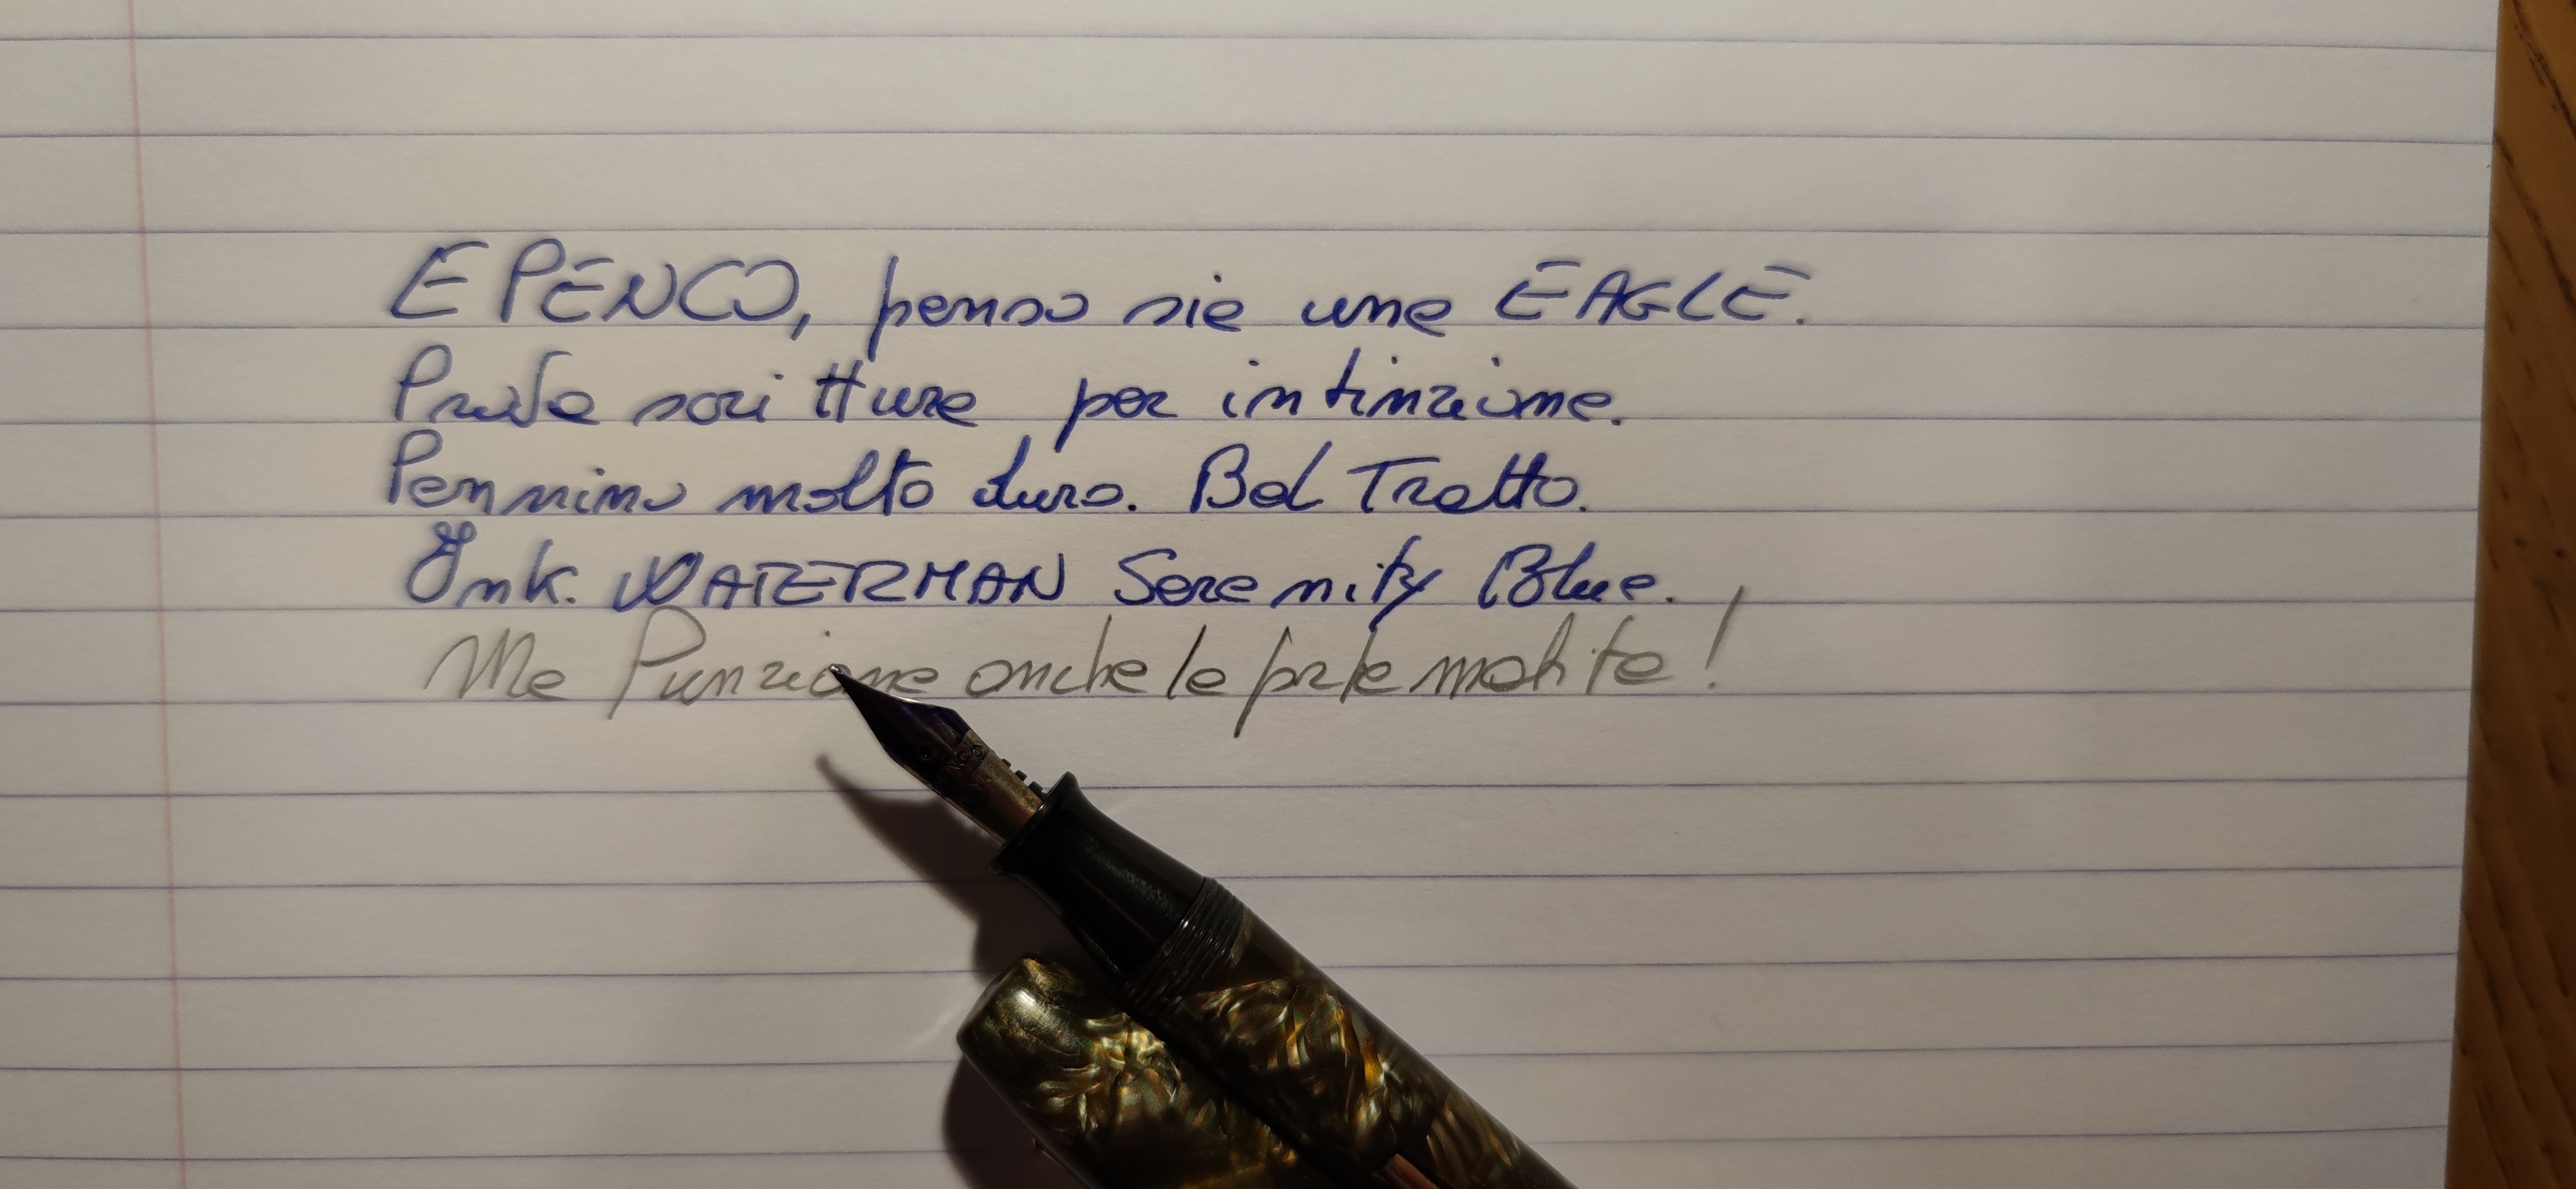 EPENCO, penso sia una EAGLE.
Prova scrittura per intinzione.
Pennino molto duro. Bel Tratto.
Ink. WATERMAN Serenity Blue.
Ma Funziona anche la parte matita!